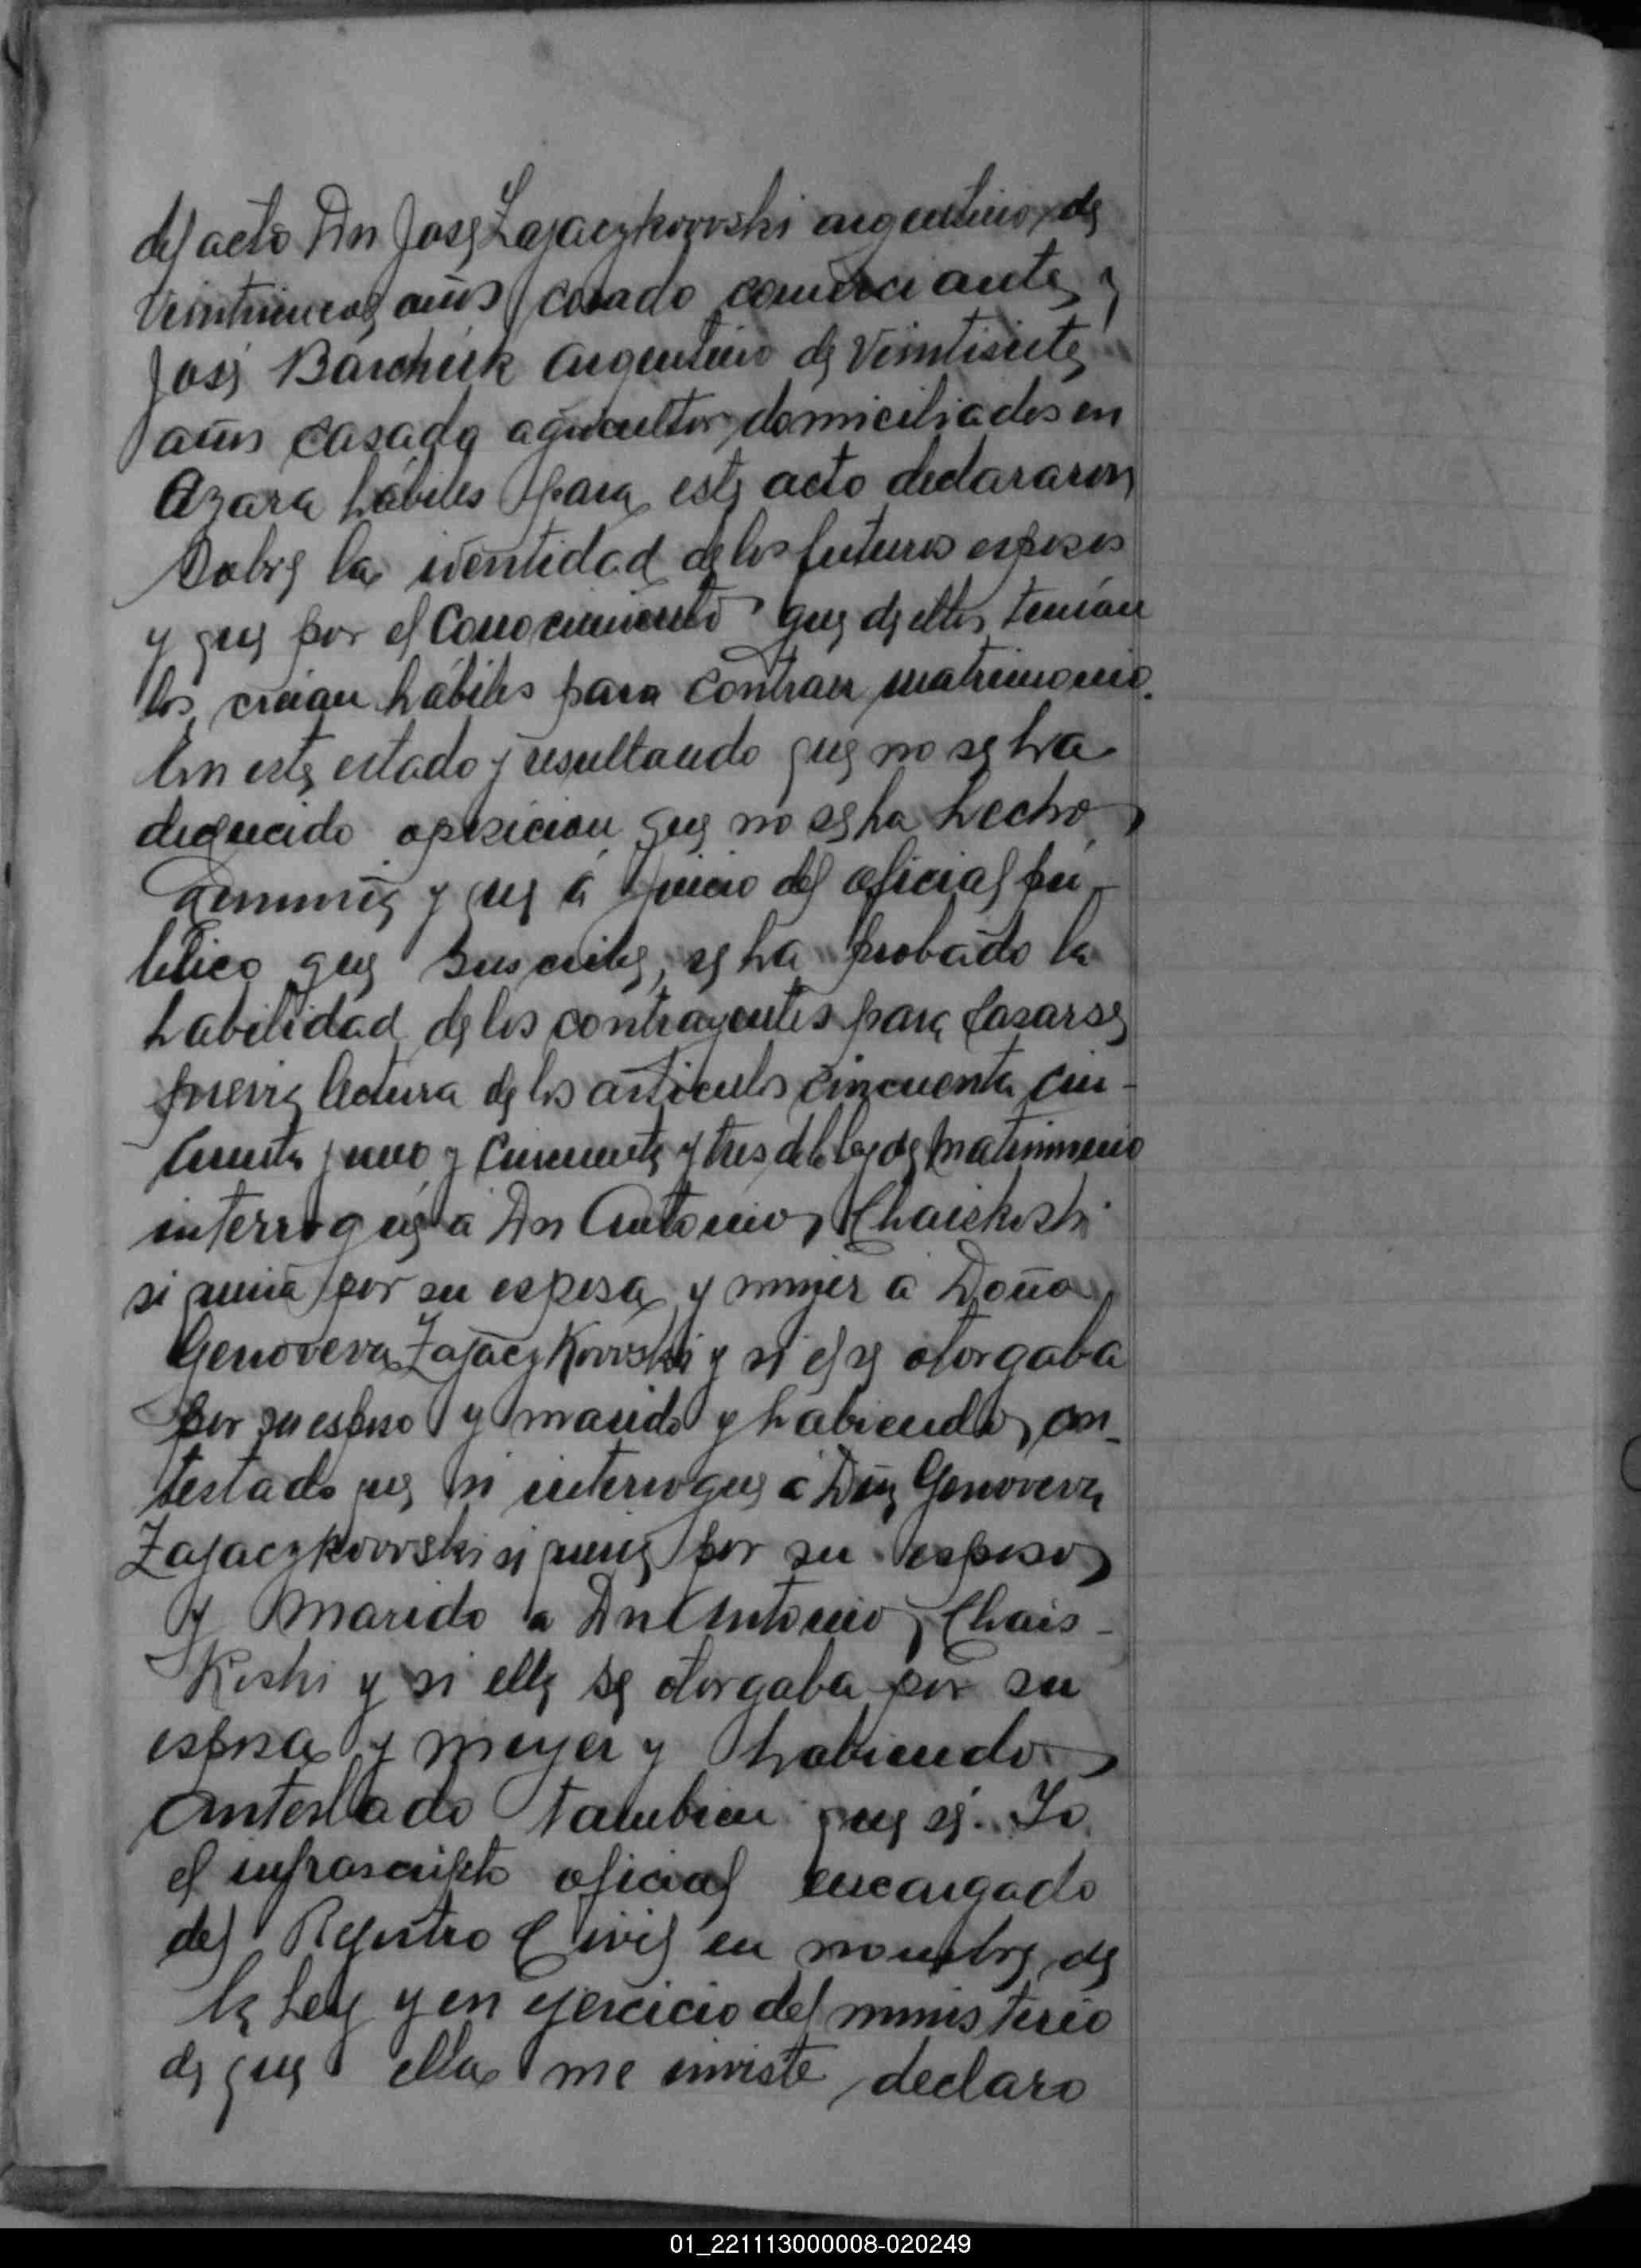 del acto Dn José Zajaczkowski argentino de
Veinticinco años casado comerciante y
José Barchuk argentino de Veintisiete
años casado agricultor, domiciliados en
Azara hábiles para este acto declararon
Sobre la identidad de los futuros esposos
y que por el conocimiento que de ellos tenían
los creian hábiles para contraer matrimonio.
En este estado y resultando que no se ha
deducido oposicion que no se ha hecho
denuncia y que á juicio del oficial pú-
blico que suscribe, se ha probado la
habilidad de los contrayentes para casarse
previa lectura de los articulos cincuenta, cin-
cuenta y uno y cincuenta y tres de la ley de matrimonio
interrogué á Dn Antonio Chaickoski
si queria por su esposa y mujer a Doña
Genoveva Zajaczkowski y si el se otorgaba
por su esposo y marido y habiendo con-
testado que si interrogue á Dña Genoveva
Zajaczkowski si queria por su esposo
y marido a Dn Antonio Chais-
Koski y si ella se otorgaba por su
esposa y mujer y habiendo
contestado tambien que sí. Yo
el infrascripto oficial encargado
del Registro Civil en nombre de
la Ley y en ejercicio del ministerio
de que ella me inviste, declaro
01_221113000008-020249